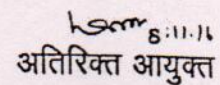 8:11.16
अतिरिक्त आयुक्त